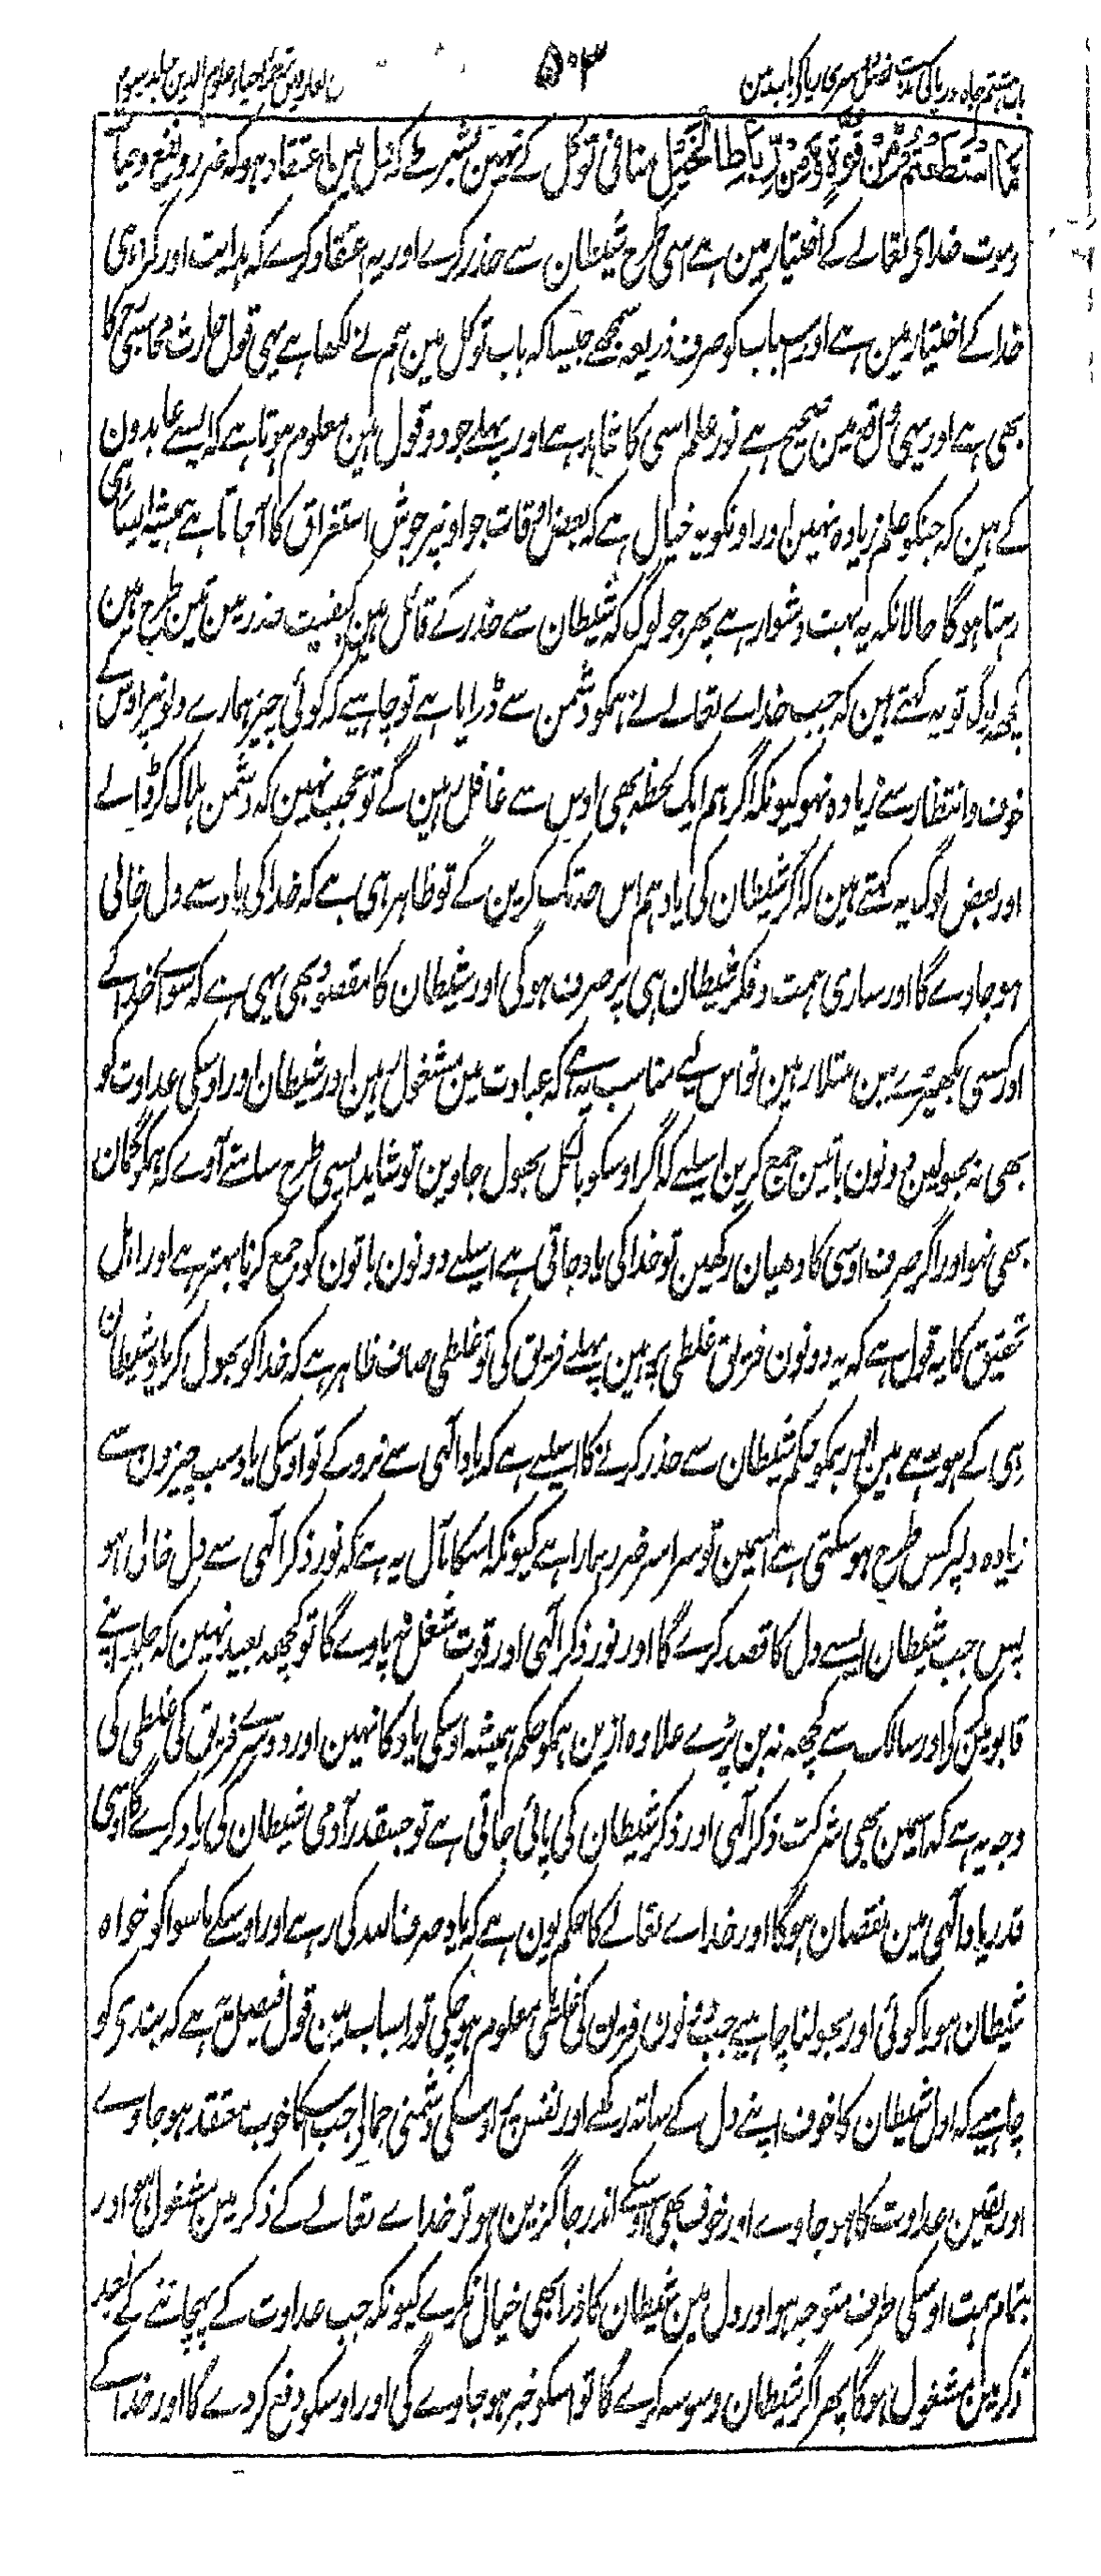 باب ہشتم جاہ و ریا کی مذمت فصل دوسری ریا کی برائی مین
۵۰۳
مذاق العارفین ترجمہ احیاء علوم الدین جلد سوم
مَا اسْتَطَعْتُمْ مِّنْ قُوَّةٍ وَّمِنْ رِّبَاطِ الْخَيْلِ منافی توکل کے نہین بشرطیکہ دل مین اعتقاد ہو کہ ضرر و نفع و حیات
و موت خداے تعالے کے اختیار مین ہے اسی طرح شیطان سے حذر کرے اور یہ اعتقاد کرے کہ ہدایت اور گمراہی
خدا کے اختیار مین ہے اور اسباب کو صرف ذریعہ سمجھے جیسا کہ باب توکل مین ہم نے لکھا ہے یہی قول حارث محاسبی رح کا
بھی ہے اور یہی واقع مین صحیح ہے نور علم اسی کا شاہد ہے اور پہلے جو دو قول ہین معلوم ہوتا ہے کہ ایسے عابدون
کے ہین کہ جنکو علم زیادہ نہین اور اونکو یہ خیال ہے کہ بعض اوقات جو اونپر جوش استغراق کا آجاتا ہے ہمیشہ ایسا ہی
رہتا ہوگا حالانکہ یہ بہت دشوار ہے پھر جو لوگ کہ شیطان سے حذر کے قائل ہین کیفیت حذر مین تین طرح ہین
کچھ لوگ تو یہ کہتے ہین کہ جب خداے تعالے نے ہمکو دشمن سے ڈرایا ہے تو چاہیے کہ کوئی چیز ہمارے دلونپر اوس کے
خوف و انتظار سے زیادہ نہو کیونکہ اگر ہم ایک لحظہ بھی اوس سے غافل رہین گے تو عجب نہین کہ دشمن ہلاک کر ڈالے
اور بعض لوگ یہ کہتے ہین کہ اگر شیطان کی یاد ہم اس حد تک کرین گے تو ظاہر ہی ہے کہ خدا کی یاد سے دل خالی
ہو جاوے گا اور ساری ہمت و فکر شیطان ہی پر صرف ہوگی اور شیطان کا مقصود بھی یہی ہے کہ سوا خدا کے
اور کسی بکھیڑے مین مبتلا رہین تو اس لیے مناسب یہ ہے کہ عبادت مین مشغول رہین اور شیطان اور اوسکی عداوت کو
بھی نہ بھولین دونون باتین جمع کرین اسلیے کہ اگر اوسکو بالکل بھول جاوین تو شاید ایسی طرح سامنے آوے کہ ہمکو گمان
بھی نہو اور اگر صرف اوسی کا دھیان رکھین تو خدا کی یاد جاتی ہے اسلیے دونون باتون کو جمع کرنا بہتر ہے اور اہل
تحقیق کا یہ قول ہے کہ یہ دونون فریق غلطی پر ہین پہلے فریق کی تو غلطی صاف ظاہر ہے کہ خدا کو بھول کر یاد شیطان
ہی کے ہورہے ہین اور ہمکو حکم شیطان سے حذر کرنے کا اسلیے ہے کہ یاد آلہی سے نروکے تو اوسکی یاد سب چیزون سے
زیادہ دلپر کس طرح ہو سکتی ہے اسمین تو سراسر ضرر ہمارا ہے کیونکہ اسکا مآل یہ ہے کہ نور ذکر آلہی سے دل خالی ہو
پس جب شیطان ایسے دل کا قصد کرے گا اور نور ذکر آلہی اور قوت شغل نپاوے گا تو کچھ بعید نہین کہ جلد اپنے
قابو مین کر لے اور سالک سے کچھ نہ بن پڑے علاوہ ازین ہمکو حکم ہمیشہ اوسکی یاد کا نہین اور دوسرے فریق کی غلطی کی
وجہ یہ ہے کہ اسمین بھی شرکت ذکر آلہی اور ذکر شیطان کی پائی جاتی ہے تو جسقدر آدمی شیطان کی یاد کرے گا اوسی
قدر یاد آلہی مین نقصان ہوگا اور خداے تعالے کا حکم یون ہے کہ یاد صرف اللہ کی رہے اور اوسکے ماسوا کو خواہ
شیطان ہو یا کوئی اور بھولنا چاہیے جب دونون فریق کی غلطی معلوم ہو چکی تو اس باب مین قول فیصل یہ ہے کہ بندے کو
چاہیے کہ اول شیطان کا خوف اپنے دل کے ساتھ رکھے اور نفس پر اوسکی دشمنی جمالے جب اسکا خوب معتقد ہو جاوے
اور یقین عداوت کا ہو جاوے اور خوف بھی اوسکے اندر جاگزین ہو تو خداے تعالے کے ذکر مین مشغول ہو اور
بتمام ہمت اوسکی طرف متوجہ ہو اور دل مین شیطان کا ذرا بھی خیال نکرے کیونکہ جب عداوت کے پہچاننے کے بعد
ذکر مین مشغول ہوگا پھر اگر شیطان وسوسہ کرے گا تو اسکو خبر ہو جاوے گی اور اوسکو دفع کر دے گا اور خدا کے